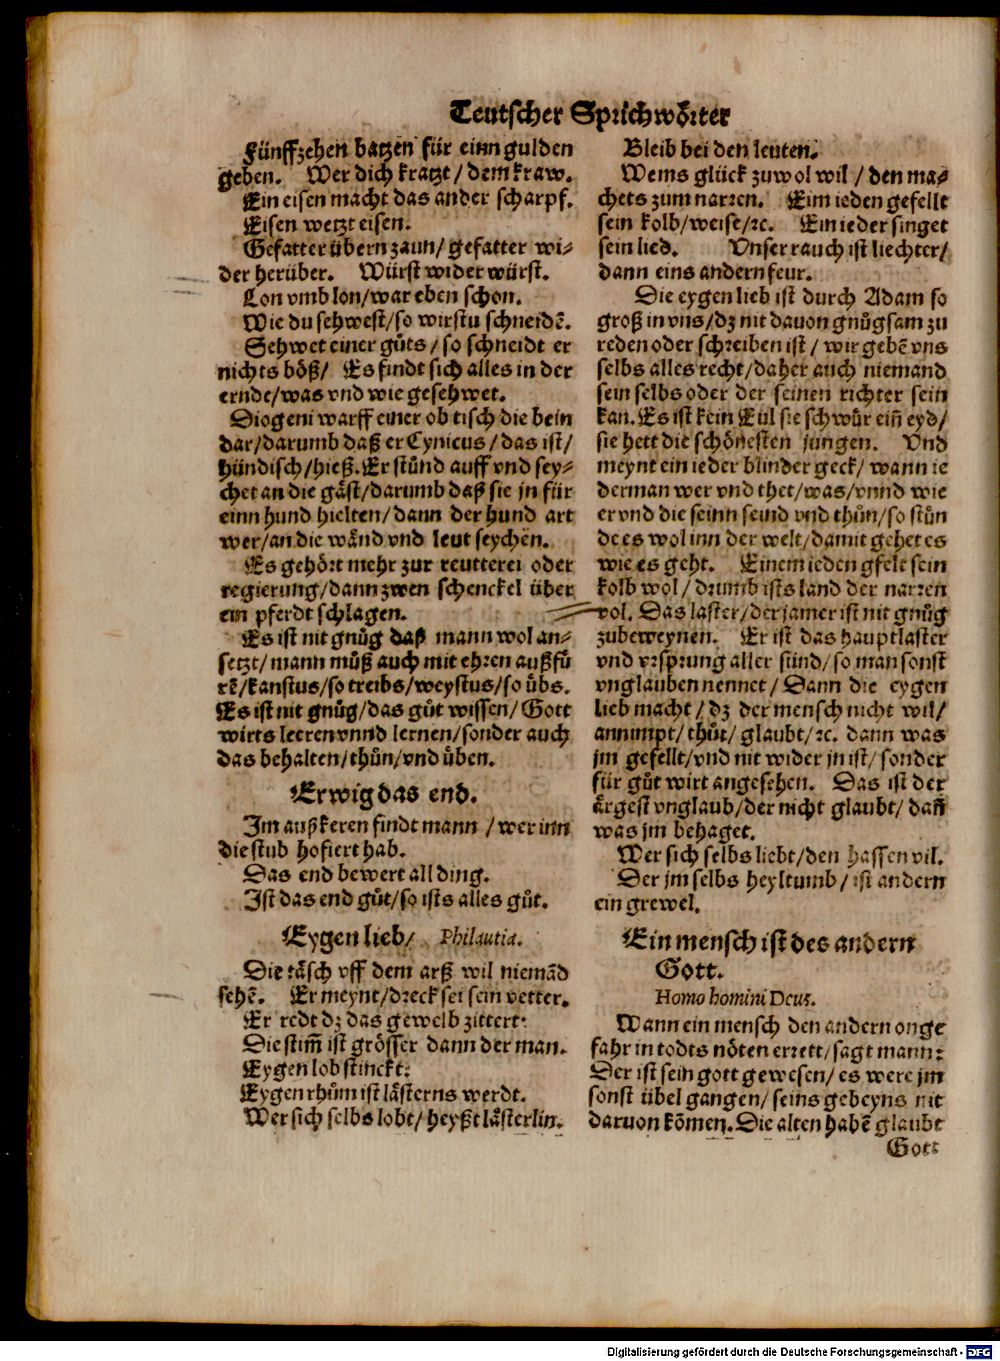 Teutscher Sprichwörter
Fünffzehen batzen für einn gulden
geben. Wer dich kratzt / dem kraw.
Ein eisen macht das ander scharpf.
Eisen wetzt eisen.
Gefatter übern zaun / gefatter wi-
der herüber. Würst wider würst.
Lon vmb lon / war eben schon.
Wie du sehwest / so wirstu schneidē.
Sehwet einer gůts / so schneidt er
nichts böß / Es findt sich alles in der
ernde / was vnd wie gesehwet.
Diogeni warff einer ob tisch die bein
dar / darumb daß er Cynicus / das ist /
hündisch / hieß. Er stůnd auff vnd sey-
chet an die gäst / darumb daß sie jn für
einn hund hielten / dann der hund art
wer / an die wänd vnd leut seychen.
Es gehört mehr zur reutterei oder
regierung / dann zwen schenckel über
ein pferdt schlagen.
Es ist nit gnůg daß mann wol an-
setzt / mann můß auch mit ehren außfü
rē / kanstus / so treibs / weystus / so übs.
Es ist nit gnůg / das gůt wissen / Gott
wirts leeren vnnd lernen / sonder auch
das behalten / thůn / vnd üben.
Erwig das end.
Im außkeren findt mann / wer inn
die stub hofiert hab.
Das end bewert all ding.
Ist das end gůt / so ists alles gůt.
Eygen lieb / Philautia.
Die täsch vff dem arß wil niemād
sehē. Er meynt / dreck sei sein vetter.
Er redt dz das gewelb zittert.
Die stim̄ ist grösser dann der man.
Eygen lob stinckt.
Eygen rhům ist lästerns werdt.
Wer sich selbs lobt / heyßt lästerlin.
Bleib bei den leuten.
Wems glück zuwol wil / den ma-
chets zum narren. Eim ieden gefellt
sein kolb / weise / ꝛc. Ein ieder singet
sein lied. Vnser rauch ist liechter /
dann eins andern feur.
Die eygen lieb ist durch Adam so
groß in vns / dz nit dauon gnůgsam zu
reden oder schreiben ist / wir gebē vns
selbs alles recht / daher auch niemand
sein selbs oder der seinen richter sein
kan. Es ist kein Eul sie schwür ein̄ eyd /
sie hett die schönesten jungen. Vnd
meynt ein ieder blinder geck / wann ie
derman wer vnd thet / was / vnnd wie
er vnd die seinn seind vnd thůn / so stün
de es wol inn der welt / damit gehet es
wie es geht. Einem ieden gfelt sein
kolb wol / drumb ists land der narren
vol. Das laster / der jamer ist nit gnůg
zubeweynen. Er ist das hauptlaster
vnd vrsprung aller sünd / so man sonst
vnglauben nennet / Dann die eygen
lieb macht / dz der mensch nicht wil /
annimpt / thůt / glaubt / ꝛc. dann was
jm gefellt / vnd nit wider jn ist / sonder
für gůt wirt angesehen. Das ist der
ärgest vnglaub / der nicht glaubt / dañ
was jm behaget.
Wer sich selbs liebt / den hassen vil.
Der jm selbs heyltumb / ist andern
ein grewel.
Ein mensch ist des andern
Gott.
Homo homini Deus.
Wann ein mensch den andern onge
fahr in todts nöten errett / sagt mann:
Der ist sein gott gewesen / es were jm
sonst übel gangen / seins gebeyns nit
daruon kōmen. Die alten habē glaubt
Gott
Digitalisierung gefördert durch die Deutsche Forschungsgemeinschaft - DFG